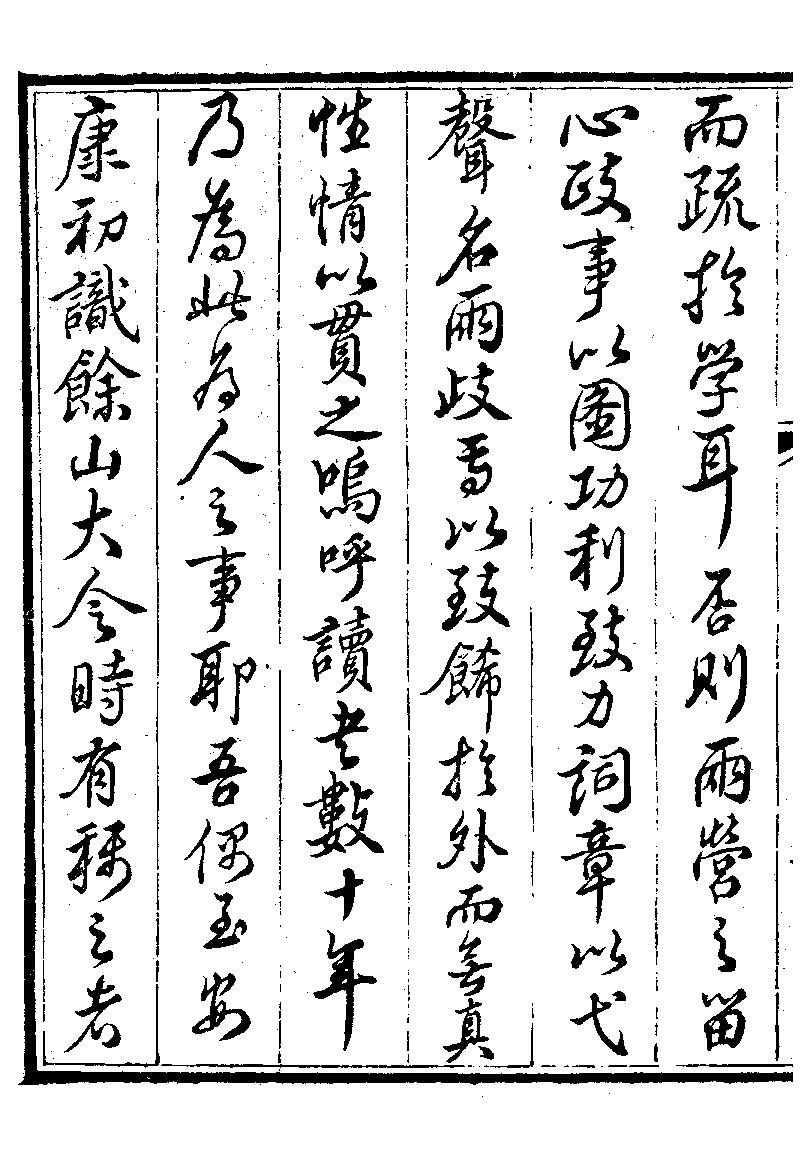 而疏於学耳否則兩營之留
心政事以圖功利致力詞章以弋
聲名兩歧焉以致餙於外而無真
性情以貫之嗚呼讀书數十年
乃為此為人之事耶吾偶至安
康初識餘山大令時有稱之者